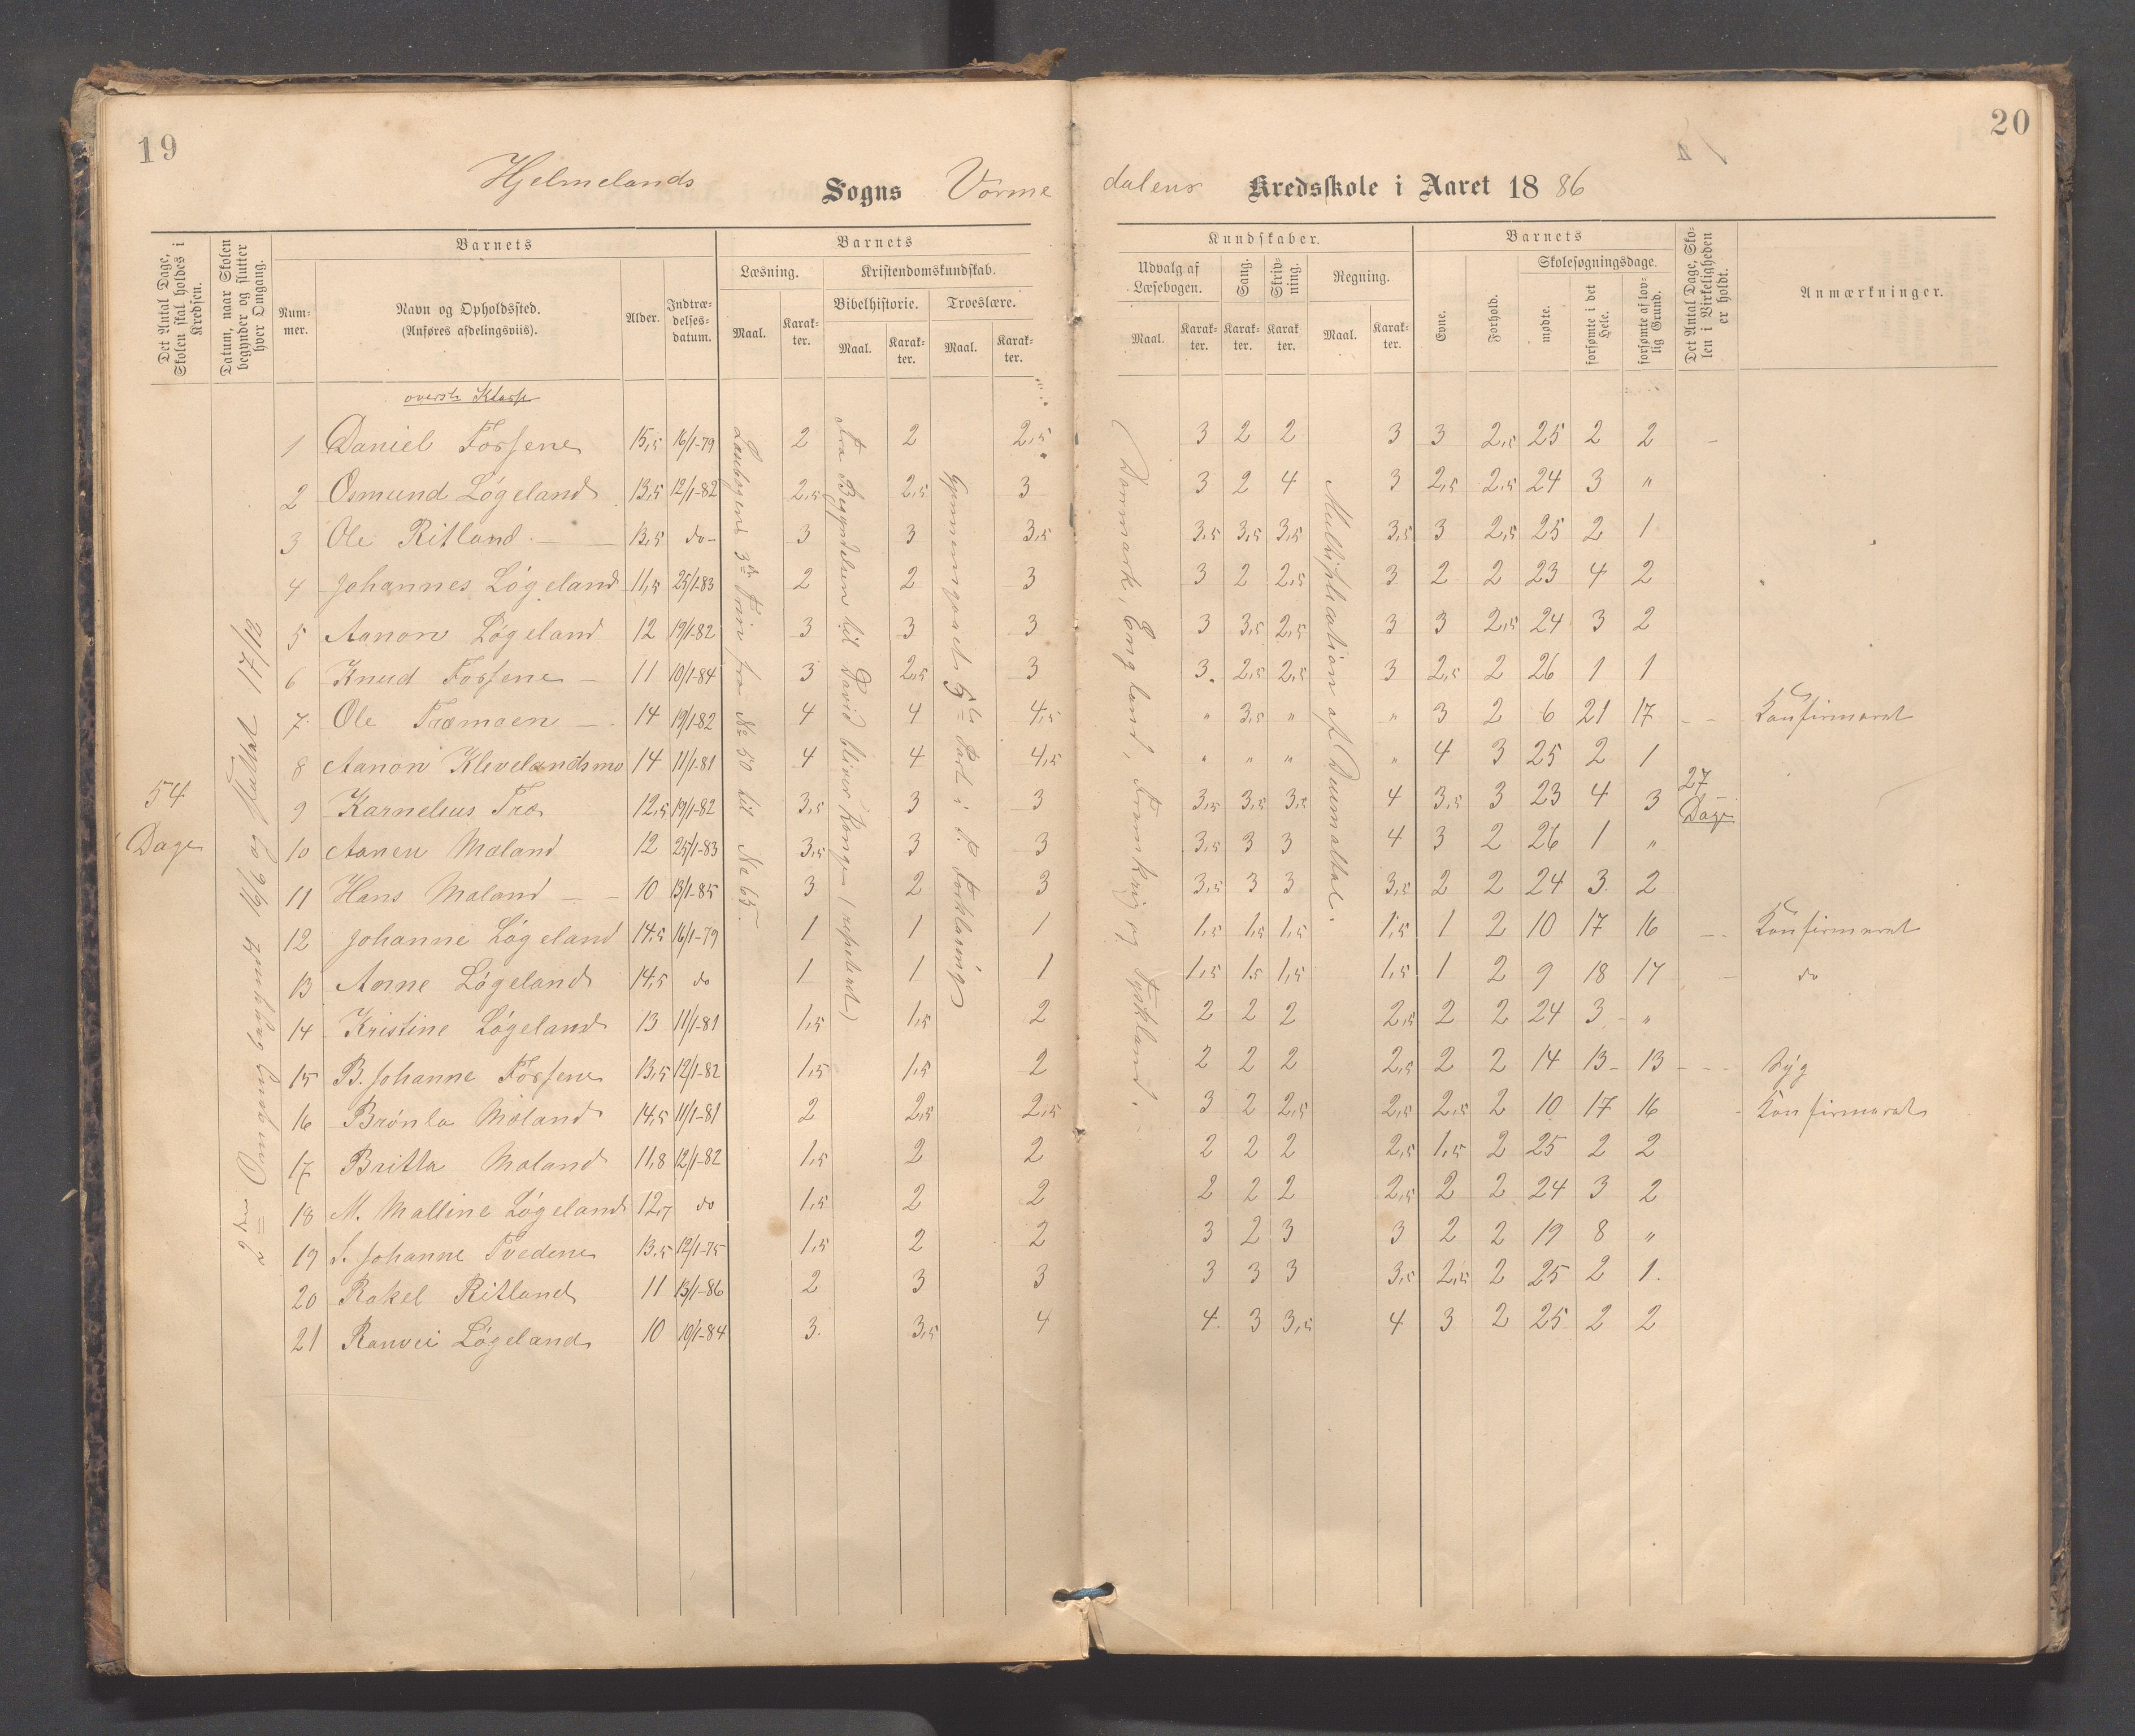 19
20
Hjelmelands Sogns Vormedalens Kredsskole i Aaret 1886
Det Antal Dage, Skolen skal holdes i Kredsen.
Datum, naar Skolen begynder og slutter hver Omgang.
Barnets
Nummer.
Navn og Opholdssted.
(Anføres afdelingsviis).
Alder.
Indtrædelsesdatum.
Barnets
Læsning.
Maal.
Karakter.
Kristendomskundskab.
Bibelhistorie.
Maal.
Karakter.
Troeslære.
Maal.
Karakter.
Kundskaber.
Udvalg af Læsebogen.
Maal.
Karakter.
Sang.
Karakter.
Skrivning.
Karakter
Regning.
Maal.
Karakter.
Barnets
Evne.
Forhold.
Skolesøgningsdage.
mødte.
forsømte i det Hele.
forsømte af lovlig Grund.
Det Antal Dage, Skolen i Virkeligheden er holdt.
Anmærkninger.
54 Dage
2den Omgang begyndt 16/6 og sluttet 17/12
Læsebogens 3de Trin fra No 50 til No 65.
Fra Begyndelsen til David bliver Konge (repeteret)
Gjennemgaaet 5te Part i P. Forklaring
Danmark, England, Frankrig og Tyskland.
Multiplication af Decimaltal.
27 Dage
øverste Klasse
1 Daniel Fossene 15,5 16/1-79 2 2 2,5 3 2 2 3 3 2,5 25 2 2 -
2 Osmund Løgeland 13,5 12/1-82 2,5 2,5 3 3 2 4 3 2,5 2,5 24 3 "
3 Ole Ritland 13,5 do 3 3 3,5 3,5 3,5 3,5 3,5 3 2,5 25 2 1
4 Johannes Løgeland 11,5 25/1-83 2 2 3 3 2 2,5 3 2 2 23 4 2
5 Aanon Løgeland 12 19/1-82 3 3 3 3 3,5 2,5 3 3 2,5 24 3 2
6 Knud Fossene 11 10/1-84 3 2,5 3 3 2,5 2,5 3 2,5 2 26 1 1
7 Ole Træmoen 14 19/1-82 4 4 4,5 " 3,5 " " 3 2 6 21 17 Konfirmeret
8 Aanon Klevelandsmo 14 11/1-81 4 4 4,5 " " " " 4 3 25 2 1
9 Karnelius Træ 12,5 19/1-82 3,5 3 3 3,5 3,5 3,5 4 3,5 3 23 4 3
10 Aanen Moland 12 25/1-83 3,5 3 3 3,5 3 3 4 3 2 26 1 "
11 Hans Moland 10 13/1-85 3 2 3 3,5 3 3 3,5 2 2 24 3 2
12 Johanne Løgeland 14,5 16/1-79 1 1 1 1,5 1,5 1,5 1,5 1 2 10 17 16 Konfirmeret
13 Anne Løgeland 14,5 do 1 1 1 1,5 1,5 1,5 1,5 1 2 9 18 17 do
14 Kristine Løgeland 13 11/1-81 1,5 1,5 2 2 2 2 2,5 2 2 24 3 "
15 B. Johanne Fossene 13,5 12/1-82 1,5 1,5 2 2 2 2 2,5 2 2 14 13 13 Syg
16 Brønla Moland 14,5 11/1-81 2 2,5 2,5 3 2 2,5 2,5 2,5 2 10 17 16 Konfirmeret
17 Britta Moland 11,8 12/1-82 1,5 2 2 2 2 2 2,5 1,5 2 25 2 2
18 M. Malline Løgeland 12,7 do 1,5 2 2 2 2 2 2,5 2 2 24 3 2
19 S. Johanne Tvedene 13,5 12/1-75 1,5 2 2 3 2 3 3 2 2 19 8 "
20 Rakel Ritland 11 13/1-86 2 3 3 3 3 3 3,5 2,5 2 25 2 1
21 Ranvei Løgeland 10 10/1-84 3 3,5 4 4 3 3,5 4 3 2 25 2 2